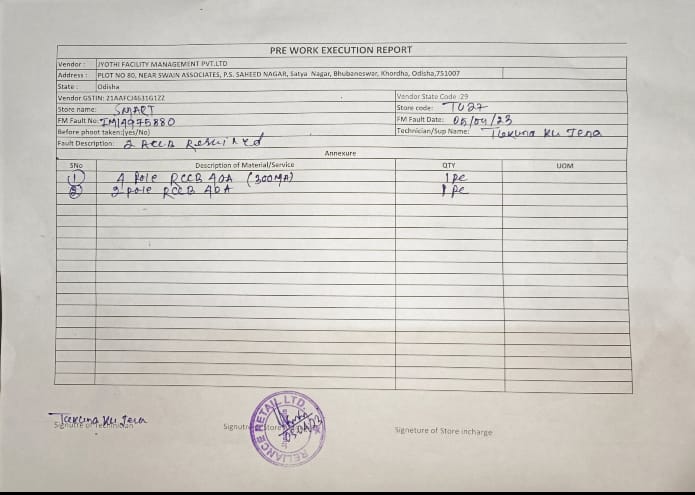 PRE WORK EXECUTION REPORT
Vendor : JYOTHI FACILITY MANAGEMENT PVT.LTD
Address : PLOT NO 80, NEAR SWAIN ASSOCIATES, P.S. SAHEED NAGAR, Satya Nagar, Bhubaneswar, Khordha, Odisha,751007
State : Odisha
Vendor GSTIN: 21AAFCJ4631G1ZZ Vendor State Code :29
Store name: SMART Store code: TU27
FM Fault No: IM14975880 FM Fault Date: 05/04/23
Before phoot taken:(yes/No) Technician/Sup Name: Tikuna Ku Jena
Fault Description: 2 RCCB Required
Annexure
SNo Description of Material/Service QTY UOM
1 4 Pole RCCB 40A (300MA) 1 pc
2 2 pole RCCB 40A 1 pc
Ku Jena
Signutre of Technician Signutre Store Signeture of Store incharge
RELIANCE RETAIL LTD.